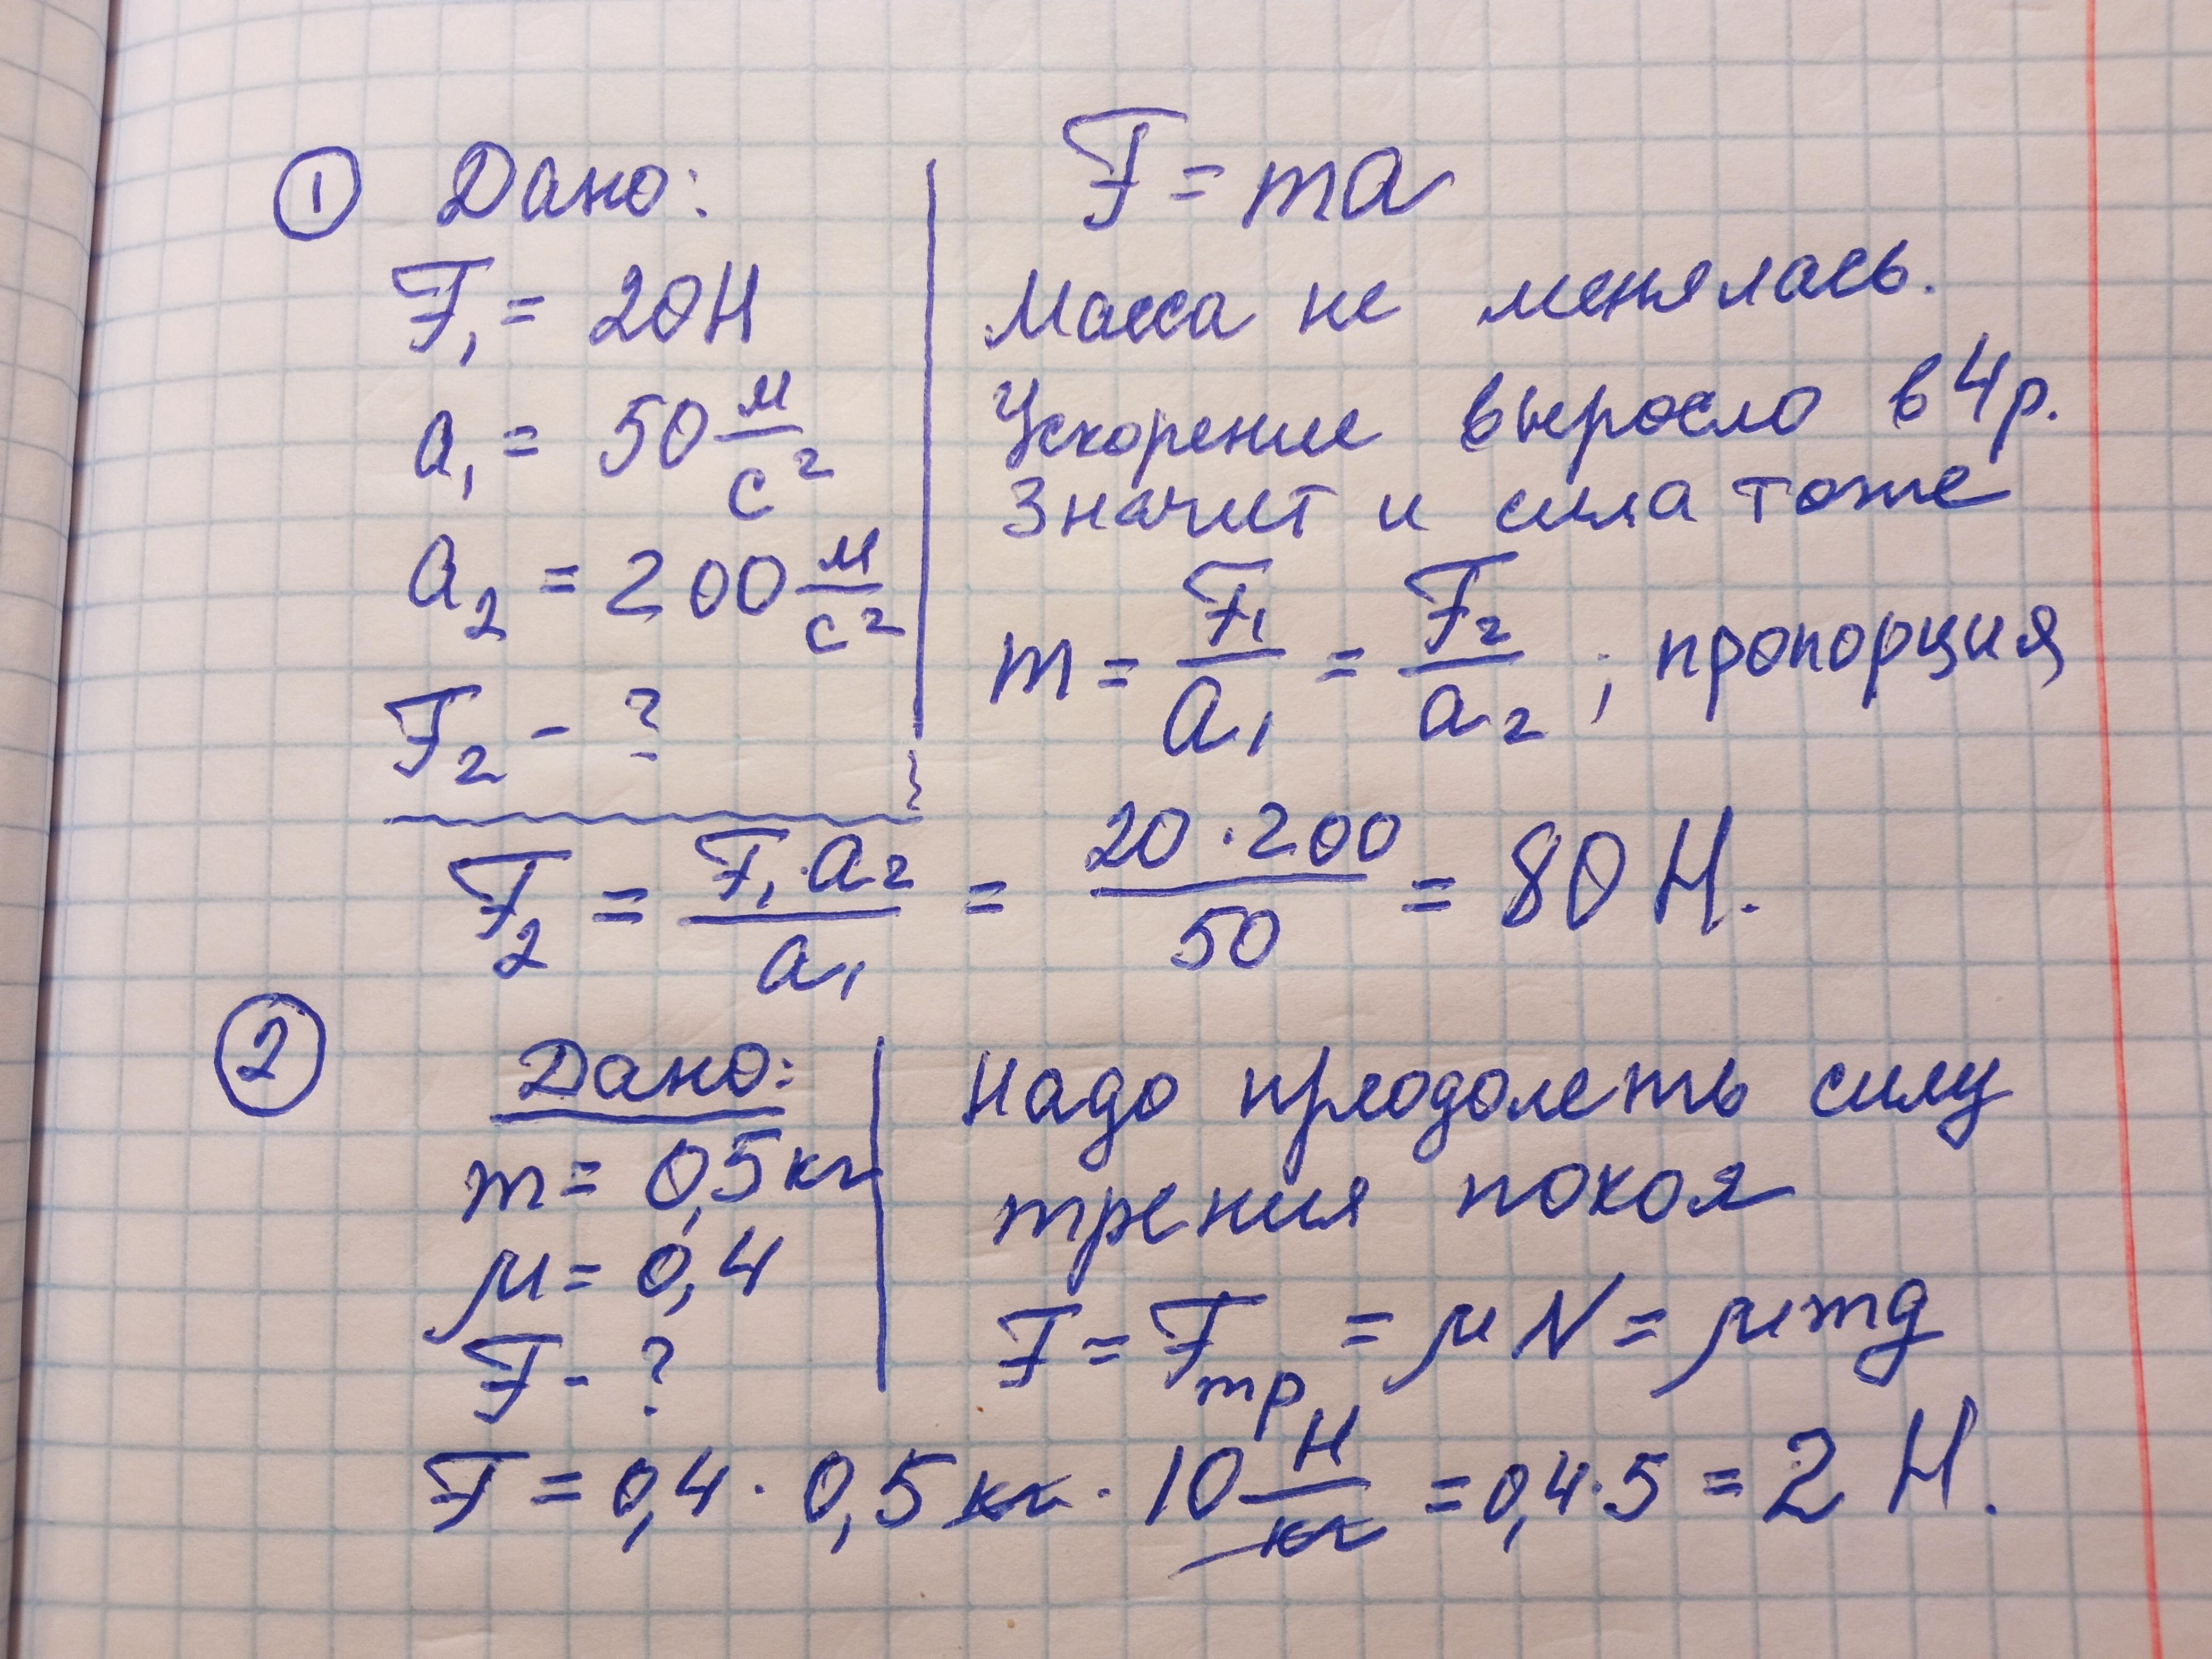 ① Дано:
F₁ = 20Н
a₁ = 50 м/с²
a₂ = 200 м/с²
F₂ - ?
F = ma
Масса не менялась.
Ускорение выросло в 4 р.
Значит и сила тоже
m = F₁/a₁ = F₂/a₂ ; пропорция
F₂ = F₁·a₂/a₁ = 20·200/50 = 80 Н.
② Дано:
m = 0,5 кг
μ = 0,4
F - ?
Надо преодолеть силу
трения покоя
F = Fтр = μN = μmg
F = 0,4 · 0,5 кг · 10 Н/кг = 0,4·5 = 2 Н.